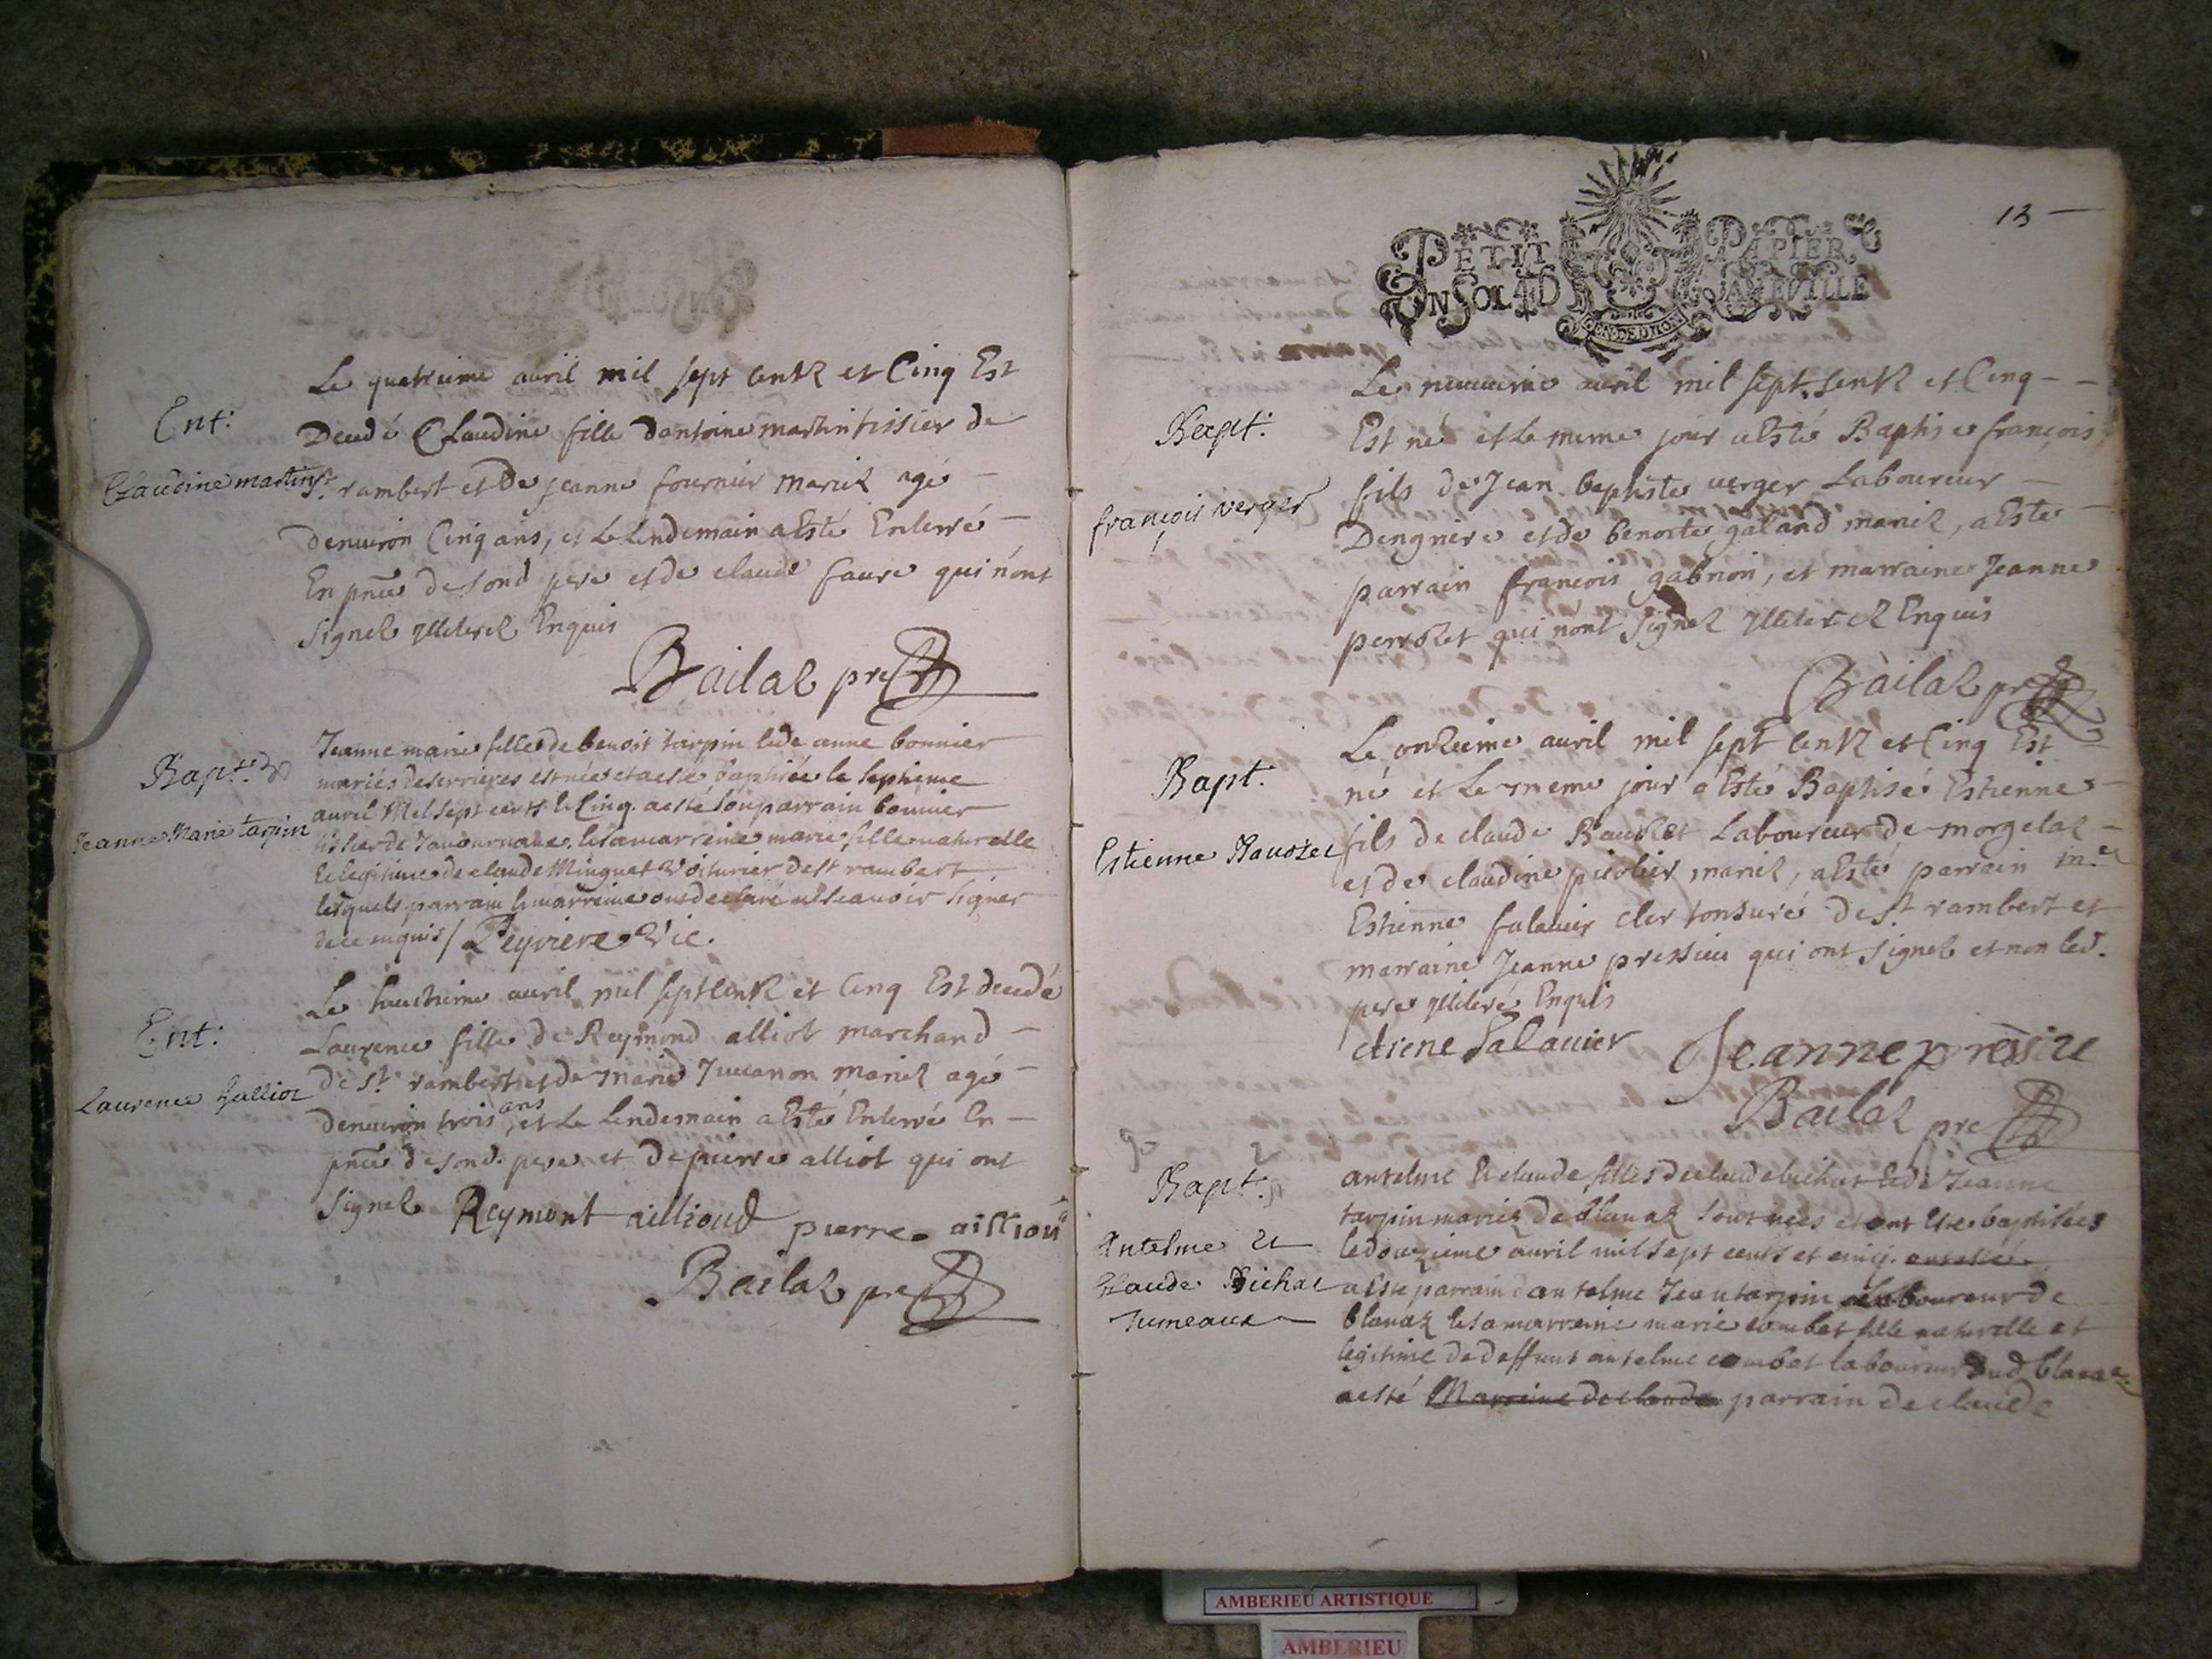 Le quatrieme avril mil sept centz et Cinq Est
Ent:
Decedé Claudine fille dantoine martin tissier de
Claudine martin
St. rambert et de jeanne fournier mariez agé
denuiron Cinq ans, et le Lendemain a Esté Enterré
En pnce de sond pere et de claude faure qui n'ont
signez illiterez Enquis
Bailaz pre
Bapt:
Jeanne marie fille de benoit tarpin et de anne bonnier
mariés deserrieres est née et a esté baptisée le septieme
Jeanne Marie tarpin
avril Mil sept cents et Cinq. a esté son parrain bonnier
et sa marreine marie fille naturelle
et legitime de claude Minguet voiturier de st rambert
lesquels parrain et marreine ont declaré ne scauoir signer
de ce enquis / Peyriere Vic.
Le huictieme avril mil sept centz et Cinq Est decedé
Ent:
Laurence fille de Reymond alliot marchand
de st. rambert et de marie Juuanon mariez agé
Laurence Halliot
denuiron trois ans, et Le Lendemain a Esté Enterré En
pnce de sond. pere et de pierre alliot qui ont
signez Reymont aillioud pierre aillioud
Bailaz pre
13
PETIT PAPIER
UN SOL 4 D LA FEUILLE
Le neuuieme avril mil sept centz et Cinq
Bapt:
Est né et le meme jour a Esté Baptisé françois
françois verger
fils de Jean baptiste verger Laboureur
Dengniere et de benoite galand mariez, a Esté
parrain françois gabnon, et marraine Jeanne
perrozet qui n'ont signez illiterez Enquis
Bailaz pre
Le onzieme avril mil sept centz et Cinq Est
Bapt.
né et Le meme jour a Esté Baptisé Estienne
Estienne Bauozet
fils de claude Bauozet Laboureur de morgelaz
et de claudine mariez, a Esté parrain m.re
Estienne falauier cler tonsuré de st. rambert et
marraine Jeanne pressieu qui ont signez et non led.
pere illiteré Enquis
etiene Falauier Jeanne pressiu
Bailaz pre
Bapt.
antelme et claude filles de claude bichat et de Jeanne
tarpin mariez de blanaz sont nées et ont esté baptisées
Antelme et
le douzieme avril mil sept cents et cinq.
Claude Bichat
a esté parrain d'antelme Jean tarpin laboureur de
Jumeaux
blanaz et sa marreine marie combet fille naturelle et
legitime de deffunt antelme combet laboureur dud blanaz
a esté Marreine de claude parrain de claude
AMBERIEU ARTISTIQUE
AMBERIEU